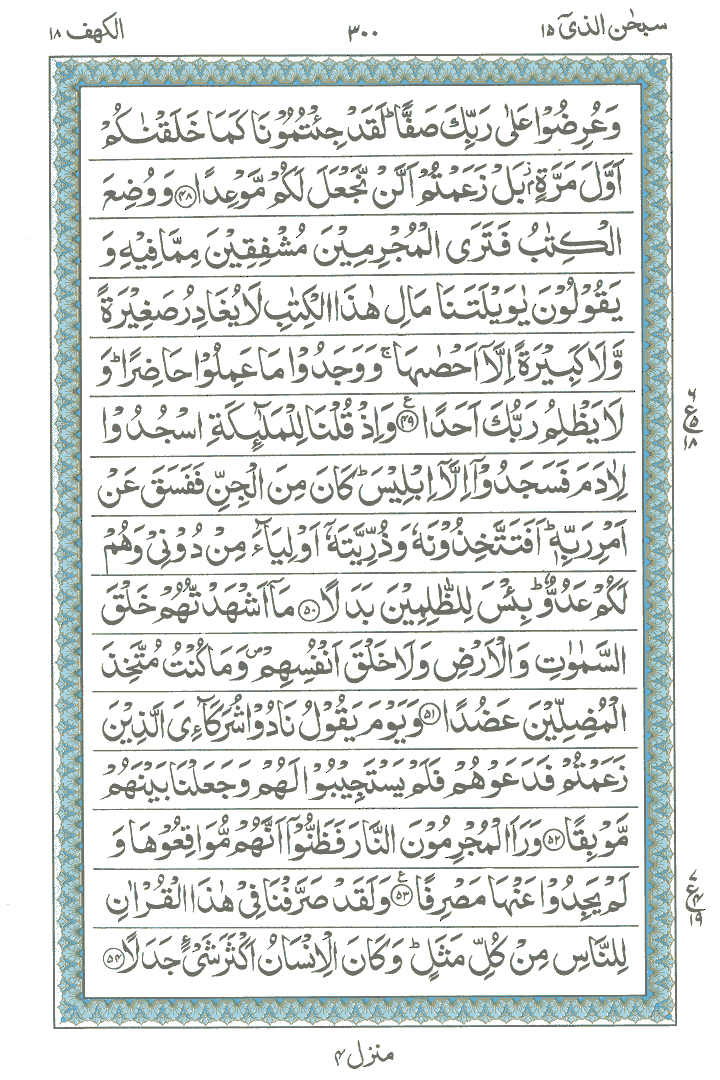 سبحٰن الذیٓ ١٥ ٣٠٠ الکهف ١٨
وَعُرِضُوْا عَلٰی رَبِّكَ صَفًّا ؕ لَقَدْ جِئْتُمُوْنَا كَمَا خَلَقْنٰكُمْ
اَوَّلَ مَرَّةٍۭ ؗ بَلْ زَعَمْتُمْ اَلَّنْ نَّجْعَلَ لَكُمْ مَّوْعِدًا ﴿۴۸﴾ وَ وُضِعَ
الْكِتٰبُ فَتَرَی الْمُجْرِمِیْنَ مُشْفِقِیْنَ مِمَّا فِیْهِ وَ
یَقُوْلُوْنَ یٰوَیْلَتَنَا مَالِ هٰذَا الْكِتٰبِ لَا یُغَادِرُ صَغِیْرَةً
وَّلَا كَبِیْرَةً اِلَّاۤ اَحْصٰىهَا ۚ وَوَجَدُوْا مَا عَمِلُوْا حَاضِرًا ؕ وَ
لَا یَظْلِمُ رَبُّكَ اَحَدًا ﴿۴۹﴾ ع وَاِذْ قُلْنَا لِلْمَلٰٓئِكَةِ اسْجُدُوْا
لِاٰدَمَ فَسَجَدُوْۤا اِلَّاۤ اِبْلِیْسَ ؕ كَانَ مِنَ الْجِنِّ فَفَسَقَ عَنْ
اَمْرِ رَبِّهٖ ؕ اَفَتَتَّخِذُوْنَهٗ وَذُرِّیَّتَهٗۤ اَوْلِیَآءَ مِنْ دُوْنِیْ وَهُمْ
لَكُمْ عَدُوٌّ ؕ بِئْسَ لِلظّٰلِمِیْنَ بَدَلًا ﴿۵۰﴾ مَاۤ اَشْهَدْتُّهُمْ خَلْقَ
السَّمٰوٰتِ وَالْاَرْضِ وَلَا خَلْقَ اَنْفُسِهِمْ ۪ وَمَا كُنْتُ مُتَّخِذَ
الْمُضِلِّیْنَ عَضُدًا ﴿۵۱﴾ وَیَوْمَ یَقُوْلُ نَادُوْا شُرَكَآءِیَ الَّذِیْنَ
زَعَمْتُمْ فَدَعَوْهُمْ فَلَمْ یَسْتَجِیْبُوْا لَهُمْ وَجَعَلْنَا بَیْنَهُمْ
مَّوْبِقًا ﴿۵۲﴾ وَرَاَ الْمُجْرِمُوْنَ النَّارَ فَظَنُّوْۤا اَنَّهُمْ مُّوَاقِعُوْهَا وَ
لَمْ یَجِدُوْا عَنْهَا مَصْرِفًا ﴿۵۳﴾ ع وَلَقَدْ صَرَّفْنَا فِیْ هٰذَا الْقُرْاٰنِ
لِلنَّاسِ مِنْ كُلِّ مَثَلٍ ؕ وَكَانَ الْاِنْسَانُ اَكْثَرَ شَیْءٍ جَدَلًا ﴿۵۴﴾
٦
ع ۵
١٨
٧
ع ۴
١٩
منزل ۴